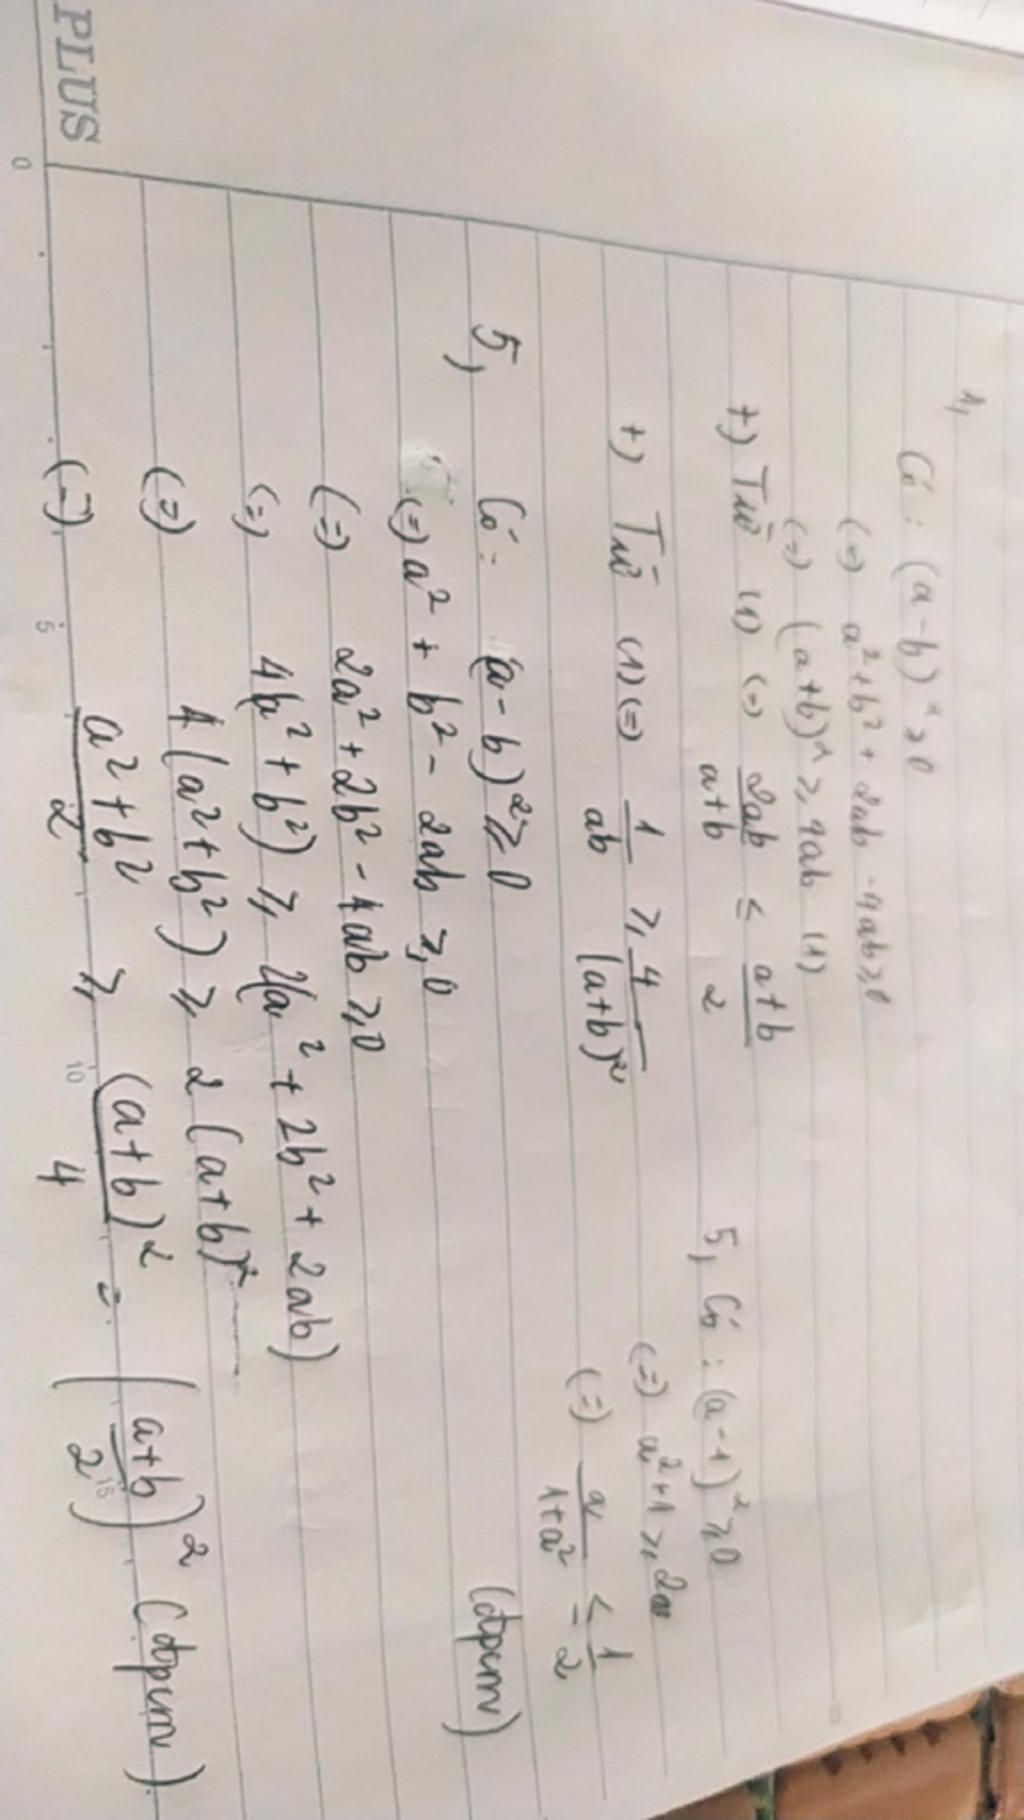 1,
Có : (a-b)² ≥ 0
(=) a²+b² + 2ab - 4ab ≥ 0
(=) (a+b)² ≥ 4ab (1)
+) Từ (1) (=) 2ab/a+b ≤ a+b/2
+) Từ (1) (=) 1/ab ≥ 4/(a+b)²
5, Có : (a-1)² ≥ 0
(=) a²+1 ≥ 2a
(=) a/1+a² ≤ 1/2
(đpcm)
5, Có : (a-b)² ≥ 0
(=) a² + b² - 2ab ≥ 0
(=) 2a² + 2b² - 4ab ≥ 0
(=) 4(a² + b²) ≥ 2(a² + 2b² + 2ab)
(=) 4(a² + b²) ≥ 2(a+b)²
(=) a²+b²/2 ≥ (a+b)²/4 = (a+b/2)² (đpcm)
PLUS
0 5 10 15